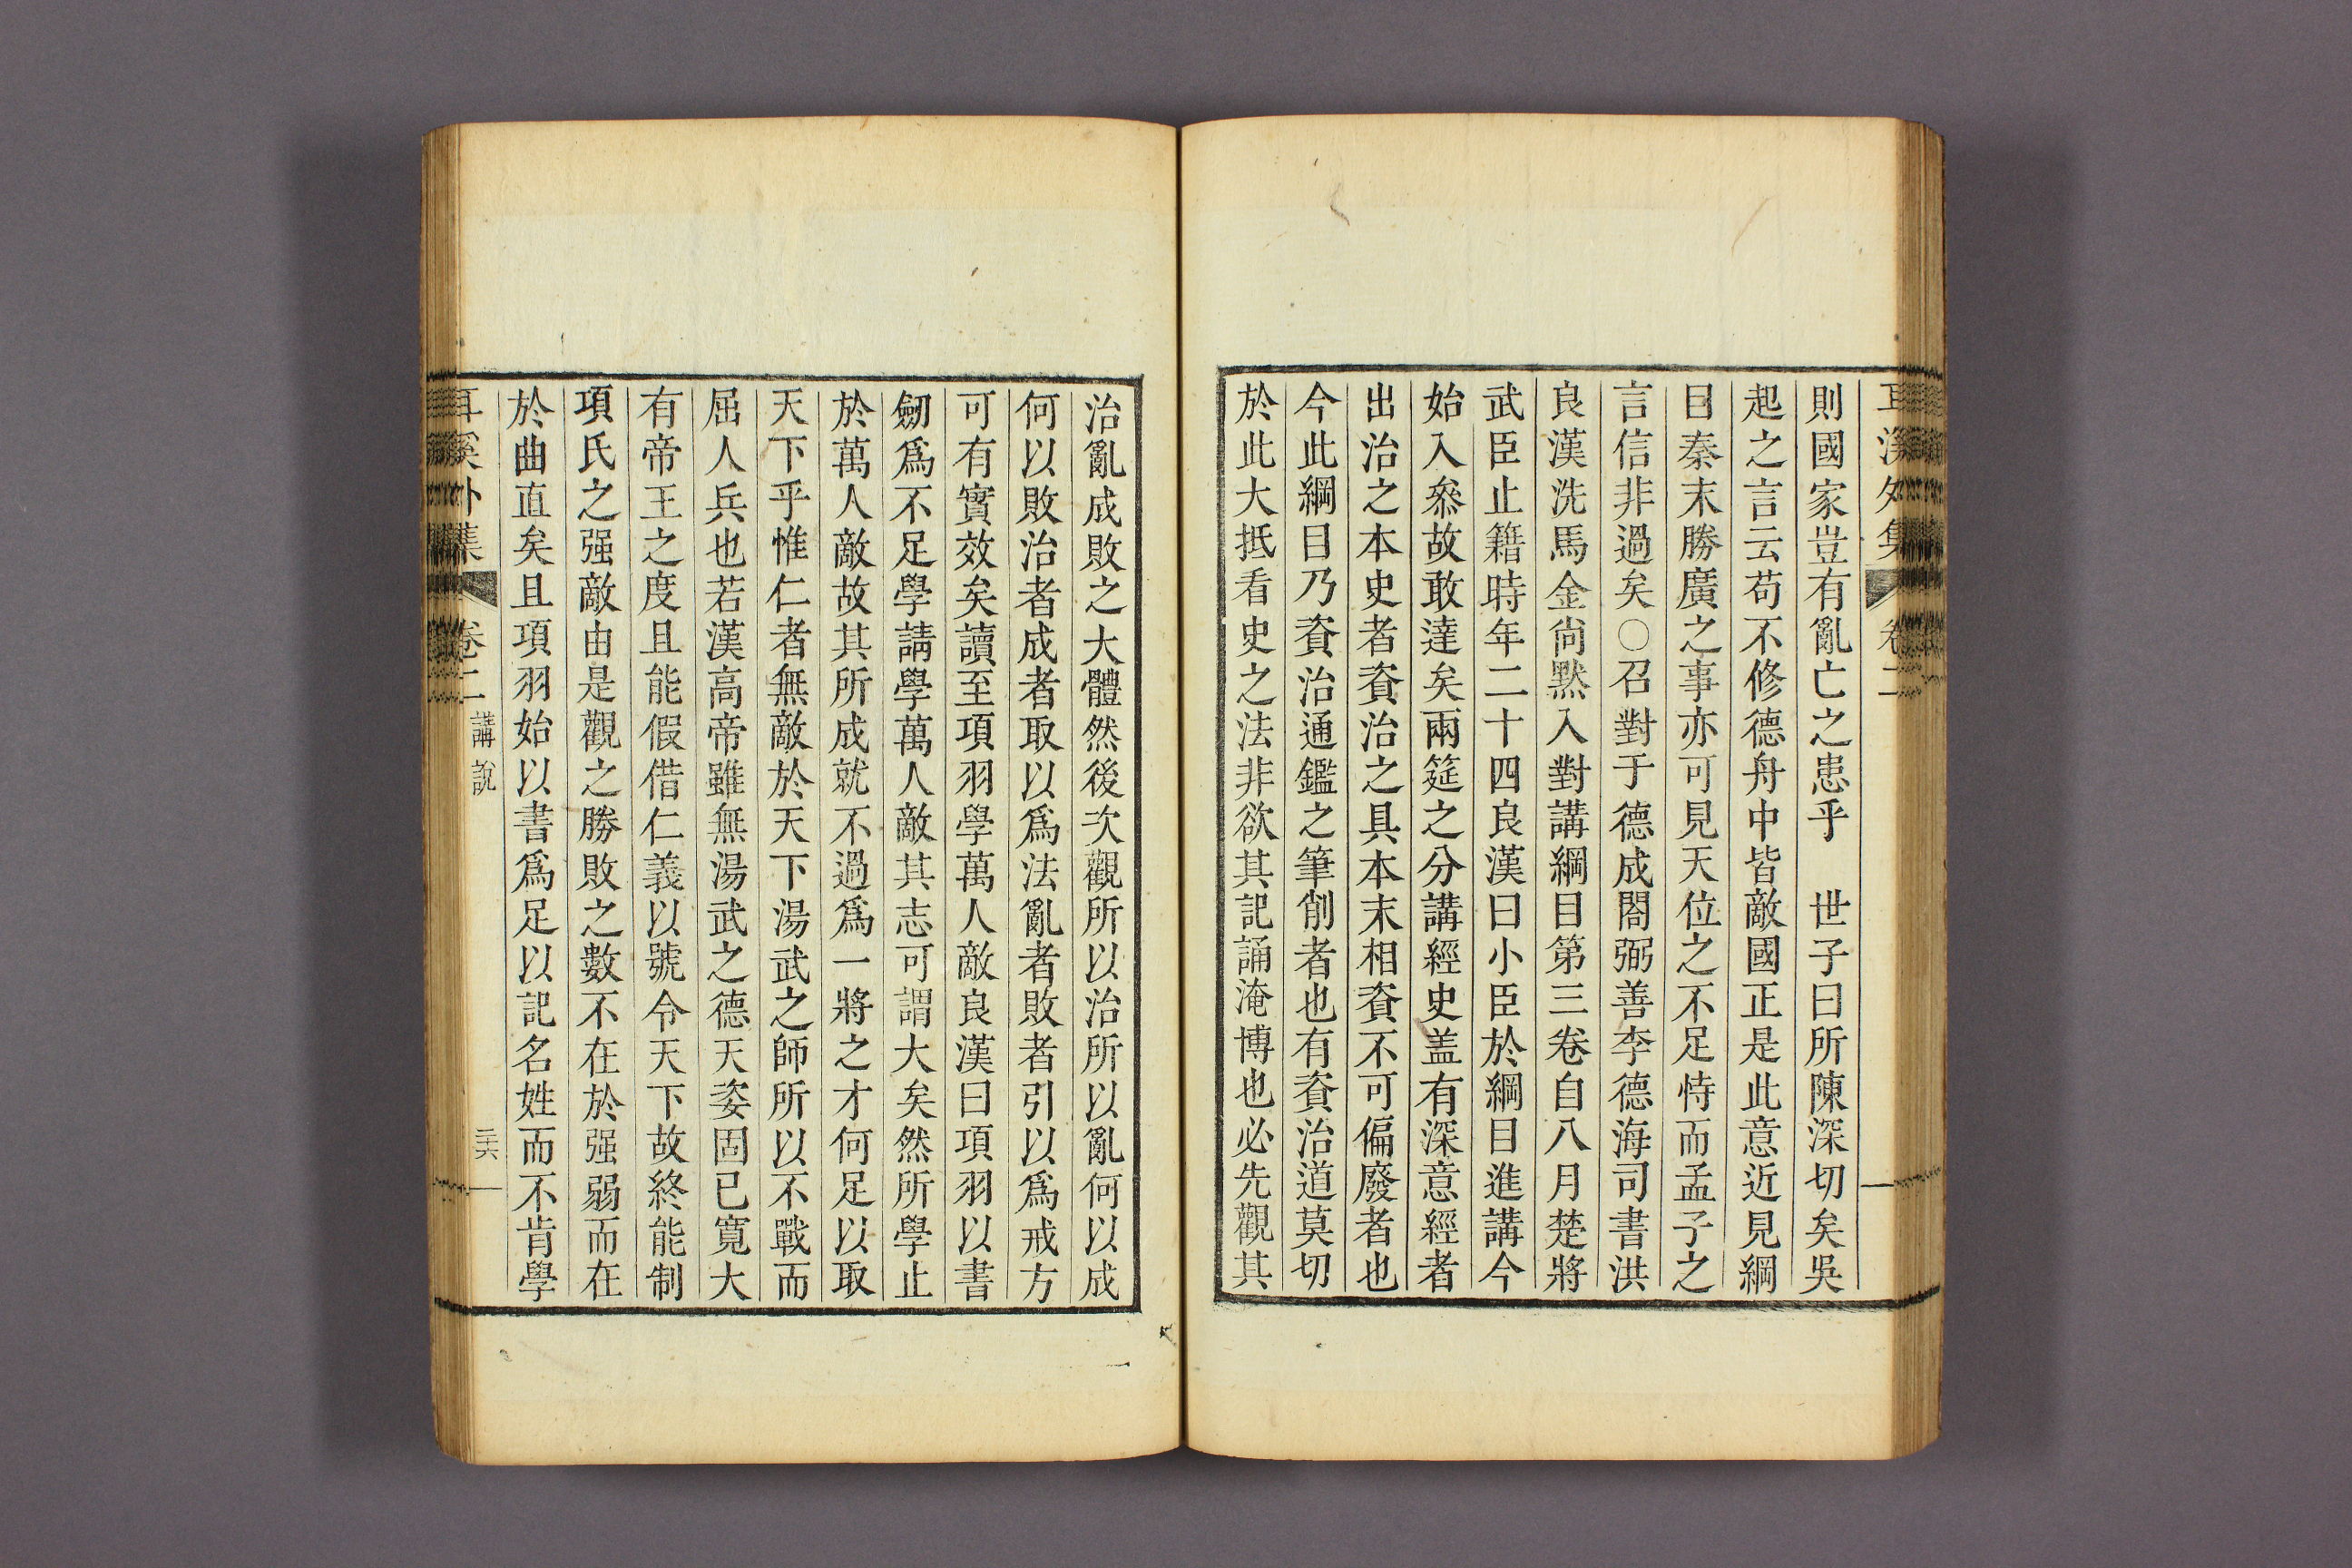 耳溪外集 卷二
則國家豈有亂亡之患乎　世子曰所陳深切矣吳
起之言云苟不修德舟中皆敵國正是此意近見綱
目秦末勝廣之事亦可見天位之不足恃而孟子之
言信非過矣○召對于德成閤弼善李德海司書洪
良漢洗馬金尙默入對講綱目第三卷自八月楚將
武臣止籍時年二十四良漢曰小臣於綱目進講今
始入叅故敢達矣兩筵之分講經史盖有深意經者
出治之本史者資治之具本末相資不可偏廢者也
今此綱目乃資治通鑑之筆削者也有資治道莫切
於此大抵看史之法非欲其記誦淹博也必先觀其
治亂成敗之大體然後次觀所以治所以亂何以成
何以敗治者成者取以爲法亂者敗者引以爲戒方
可有實效矣讀至項羽學萬人敵良漢曰項羽以書
劒爲不足學請學萬人敵其志可謂大矣然所學止
於萬人敵故其所成就不過爲一將之才何足以取
天下乎惟仁者無敵於天下湯武之師所以不戰而
屈人兵也若漢高帝雖無湯武之德天姿固已寬大
有帝王之度且能假借仁義以號令天下故終能制
項氏之强敵由是觀之勝敗之數不在於强弱而在
於曲直矣且項羽始以書爲足以記名姓而不肯學
耳溪外集 卷二 講說 二六